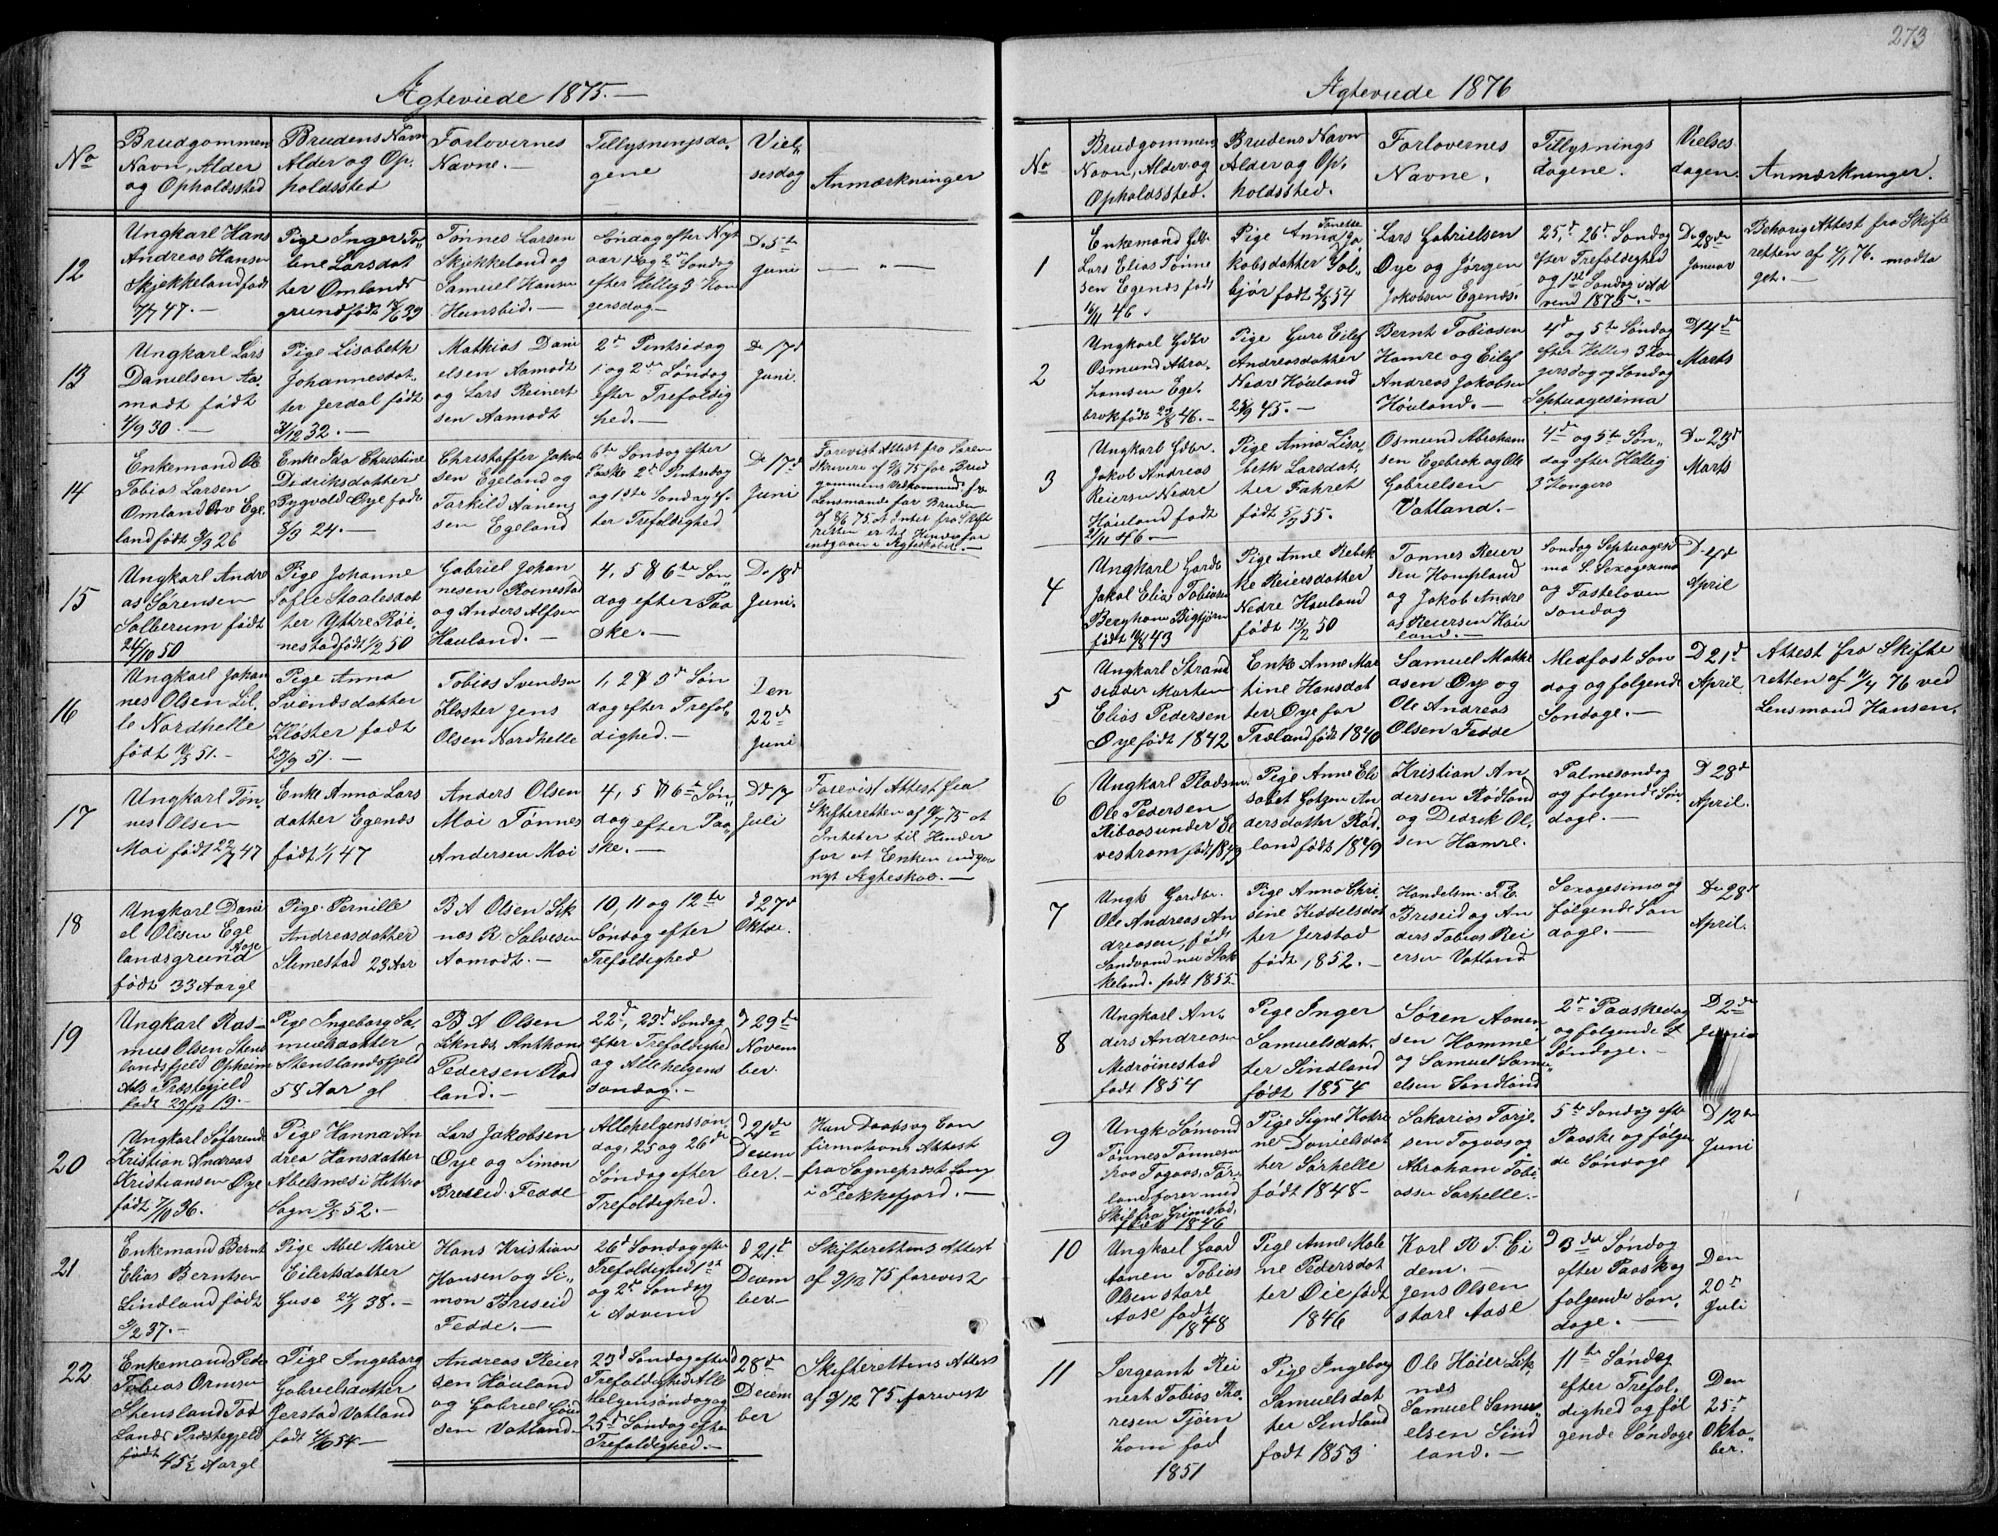 273
Ægteviede 1875.—
No
Brudgommen
Navn, Alder
og Opholdssted
Brudens Navn
Alder og Op,
holdssted
Forlovernes
Navne.—
Tillysningsda,
gene
Viel,
sesdag
Anmærkninger
12
Ungkarl Hans
Andreas Hansen
Skjekkeland født
47.—
Pige Inger To,
line Larsdat
ter Omlands
grund født 39
Tønnes Larsen
Skjekkeland og
Samuel Hansen
Hunsbid.—
Søndag efter Nyt
aar 1ste og 2den Søndag
efter Hellig 3 Kon
gersdag—
D. 5te
Juni
— „ —
13
Ungkarl Lars
Danielsen Aa,
modt født
1/9 30.—
Pige Lisabeth
Johannesdat,
ter Jerdal født
32.—
Mathias Dani
elsen Aamodt
og Lars Reinert
sen Aamodt
2den Pintsedag
1 og 2den Søndag
efter Trefoldig
hed.—
D. 17d
Juni.
14
Enkemand Ole
Tobias Larsen
Omland Øvre Ege,
land født 9/3 26
Enke Ida Christine
Dedriksdatter
Bygvold Øye født
8/3 24.—
Christoffer Jakob
sen Egeland og
Torkild Aanen,
sen Egeland
6te Søndag efter
Paaske 2den Pintsedag
og 1ste Søndag ef,
ter Trefoldighed
D. 17d
Juni
Forevist Attest fra Soren
skriveren af 75 for Brud
gommens Vedkommende, fra
Lensmanden for Bruden
af 8/6 75 at Intet fra Skift
retten er til Hinder for
indgaaen i Ægteskabet.—
15
Ungkarl Andre
as Sørensen
Solberum født
24/10 50
Pige Johanne
Sofie Staalesdat
ter Yttre Røi,
nestad født 1/2 50
Gabriel Johan
nesen Roinestad
og Anders Alfsen
Houland.—
4, 5 & 6te Søn,
dag efter Paa
ske.—
D. 18d
Juni.
16
Ungkarl Johan
nes Olsen Lil,
le Nordhelle
født 51.—
Pige Anna
Svendsdatter
Kloster født
9 51.—
Tobias Svendsen
Kloster Jens
Olsen Nordhelle
1, 2 & 3d Søn
dag efter Trefol,
dighed.—
Den
22d
Juni
17
Ungkarl Tøn
nes Olsen
Moi født 22/7 47
Enke Anna Lars
datter Egenes
født 1/1 47
Anders Olsen
Moi Tønnes
Andersen Moi
4, 5 & 6te Søn,
dag efter Paa,
ske.—
D. 17
Juli
Forevist Attest fra
Skifteretten af 75 at
Intet er til Hinder
for at Enken indgaar
nyt Ægteskab.—
18
Ungkarl Dani
el Olesen Ege
Aase
landsgrund
født 33 Aar gl
Pige Pernille
Andreasdatter
Stimestad 23 Aar
B A Olsen Lik
næs R. Salvesen
Aamodt.—
10, 11 og 12te
Søndag efter
Trefoldighed
d 27d
Oktbr.
19
Ungkarl Ras—
mus Olsen Stens
landsfjeld Opheim
Aals Præstegjeld
født 19.—
Pige Ingeborg Sa,
muelsdatter
Stenslandsfjeld
58 Aar gl
B A Olsen
Liknæs, Anthon
Pedersen Rød
land.—
22de, 23d Søndag
efter Trefoldighed
og Allehelgens
søndag.—
d 29de
Novem
ber.
20
Ungkarl Sofarend
Kristian Andreas
Kristiansen Øye
født 7/10 36.
Pige Hanna An
drea Hansdatter
Abelsnæs i Hittrø
Sogn 52.—
Lars Jakobsen
Øye og Simon
Breseid Fedde
Allehelgenssøn,
dag, 25 og 26de
Søndag efter
Trefoldighed.
d 21de
Decem
ber.—
Hun Daabs og Con
firmations Attest
fra Sogneprest Lang
i Flekkefjord.—
21
Enkemand Bernt
Elias Berntsen
Lindland født
9/2 37.—
Pige Abel Marie
Eilertsdatter
Guse 38.—
Hans Kristian
Hansen og Si,
mon Briseid
Fedde.—
26d Søndag efter
Trefoldighed 1ste
og 2den Søndag
i Advend
d 21d
Decem
ber.—
Skifterettens Attest
af 9/12 75 forevist
22
Enkemand Peder
Tobias Ormsen
Stensland Tød
lands Præstegjeld
født 45 ½ Aar gl
Pige Ingeborg
Gabrielsdatter
Jerstad Vatland
født 54—
Andreas Reier
sen Høuland
og Gabriel
sen Vatland—
23d Søndag efter
Trefoldighed Alle
helgensøndag og
25d Søndag efter
Trefoldighed.—
d 28de
Decem
ber
Skifterettens Attest
af 9/12 75 forevist
Ægteviede 1876
No
Brudgommens
Navn, Alder og
Opholdssted.
Brudens Navn
Alder og Op,
holdssted.
Forlovernes
Navne.
Tillysnings
dagene.
Vielses
dagen.
Anmærkninger.
1
Enkemand
Lars Elias Tønne
sen Egenes født
46.
Pige Anna Tonette Ja
kobsdatter Sol,
bjør født 54
Lars Gabrielsen
Øye og Jørgen
Jakobsen Egenes.
25, 26de Søndag
efter Trefoldighed
og 1ste Søndag i Ad
vend 1875.—
D 28de
Januar
Behørig Attest fra Skifte
retten af 76. modta
get.—
2
Ungkarl Gdbr
Osmund Abra,
hamsen Ege,
brok født 46.—
Pige Guri Eilef
Andreasdatter
Nedre Høuland
25/9 45.—
Bernt Tobiasen
Hamre og Eilef
Andreas Jakobsen
Høuland.—
4d og 5te Søndag
efter Hellig 3 Kon
gersdag og Søndag
Septuagesima
D 14de
Marts
3
Ungkarl Gdbr
Jakob Andreas
Reiersen Nedre
Høuland født
2/11 46.—
Pige Anna Lisa,
beth Larsdat,
ter Fahret
født 55.
Osmund Abraham
sen Egebrok og Ole
Gabrielsen
Vatland.—
4de og 5te Søn,
dag efter Hellig
3 Konger
D. 23d
Marts
4
Ungkarl Gardb
Jakob Elias Tobiasen
Berghom Bigtjørn
født 43
Pige Anne Rebek
ka Reiersdatter
Nedre Houland
født 13/2 50
Tønnes Reier
sen Kompland
og Jakob Andre
as Reiersen Høu
land.—
Søndag Septuagesi
ma S. Sexagesima
og Fastelaven
søndag
D. 4d
April
5
Ungkarl Strand
sidder Morten
Elias Pedersen
Øye født 1842
Enke Anne Mar
tine Hansdat
ter Øye før
Træland født 1840
Samuel Mathi
asen Øye og
Ole Andreas
Olsen Fedde
Midfaste Søn
dag og følgende
Søndage.—
D 21d
April.
Attest fra Skifte
retten af 76 ved
Lensmand Hansen.
6
Ungkarl Pladsm.
Ole Pedersen
Ribaas under El
vestrøm født 1843
Pige Anne Eli
sabet Andersdatter
ndersdatter Rød,
land født 1849
Kristian An
dersen Rødland
og Dedrik Ol,
sen Hamre.
Palmesøndag
og følgende Søn,
dage.—
D 28d
April.
7
Ungk Gardbr.
Ole Andreas An
dreasen, født
Sandvand nu Stok
keland. født 1855
Pige Anna Chri
stine Kiddelsdat
ter Jerstad
født 1852.—
Handelsm.
Briseid og An
ders Tobias Rei
ersen Vatland
Sexagesima og
følgende Søn
dage.—
D. 28d
April.
8
Ungkarl An,
ders Andreasen
Medrøinestad
født 1854
Pige Inger
Samuelsdat,
ter Sindland
født 1854
Søren Aanen
sen Homme
og Samuel Samu,
elsen Sindland
2den Paaskedag
og følgende 2
Søndage.—
D 2de
Juni
9
Ungk Sømand
Tønnes Tønnesen
paa Fogaas,
landfarer med
Skib fra Grimstad,
født 1846
Pige Signe Katri
ne Danielsdat
ter Sarhelle
født 1848—
Sakarias Tarje,
sen Fogaas og
Abraham Tobi
assen Sarhelle.—
5te Søndag eft
Paaske og følgen
de Søndage
D 12te
Juni
10
Ungkarl Gaard
Aanen Tobias
Olsen store
Aase født
1848
Pige Anne Male
ne Pedersdat
ter Øie født
1846
Karl R T. Ei
dem.—
Jens Olsen
store Aase
3die Søndag
efter Paaske og
følgende Søn
dage.—
Den
20d
Juli
11
Sergeant Rei
nert Tobias Tho,
resen Tjørn
hom fød
1851
Pige Ingeborg
Samuelsdat
ter Sindland
født 1853
Ole Høier Lik,
næs
Samuel Samu,
elsen Sind
land.—
11te Søndag
efter Trefol,
dighed og føl
gende Søndage
Den
25d
Okto,
ber.